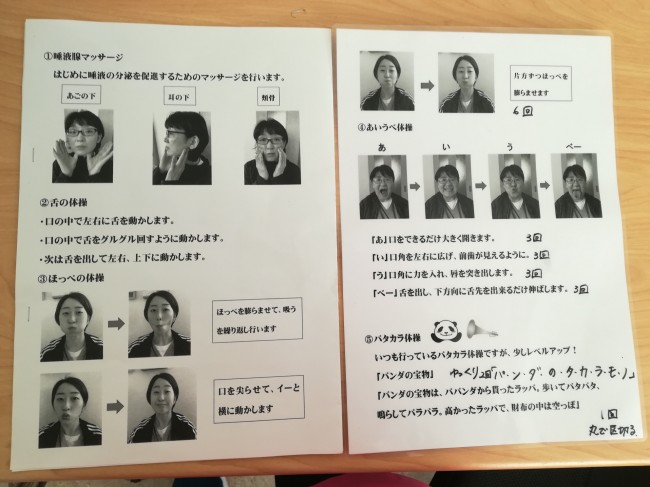 ①唾液腺マッサージ
はじめに唾液の分泌を促進するためのマッサージを行います。
あごの下
耳の下
頬骨
②舌の体操
・口の中で左右に舌を動かします。
・口の中で舌をグルグル回すように動かします。
・次は舌を出して左右、上下に動かします。
③ほっぺの体操
ほっぺを膨らませて、吸う
を繰り返し行います
口を尖らせて、イーと
横に動かします
片方ずつほっぺを
膨らませます
6回
④あいうべ体操
あ
い
う
べー
『あ』口をできるだけ大きく開きます。 3回
『い』口角を左右に広げ、前歯が見えるように。3回
『う』口角に力を入れ、唇を突き出します。 3回
『べー』舌を出し、下方向に舌先を出来るだけ伸ばします。3回
⑤パタカラ体操
いつも行っているパタカラ体操ですが、少しレベルアップ！
『パンダの宝物』 ゆっくり2回「パ・ン・ダ・の・タ・カ・ラ・モ・ノ」
『パンダの宝物は、パパンダから貰ったラッパ。歩いてパタパタ、
鳴らしてパラパラ。高かったラッパで、財布の中は空っぽ』
1回
丸で区切る